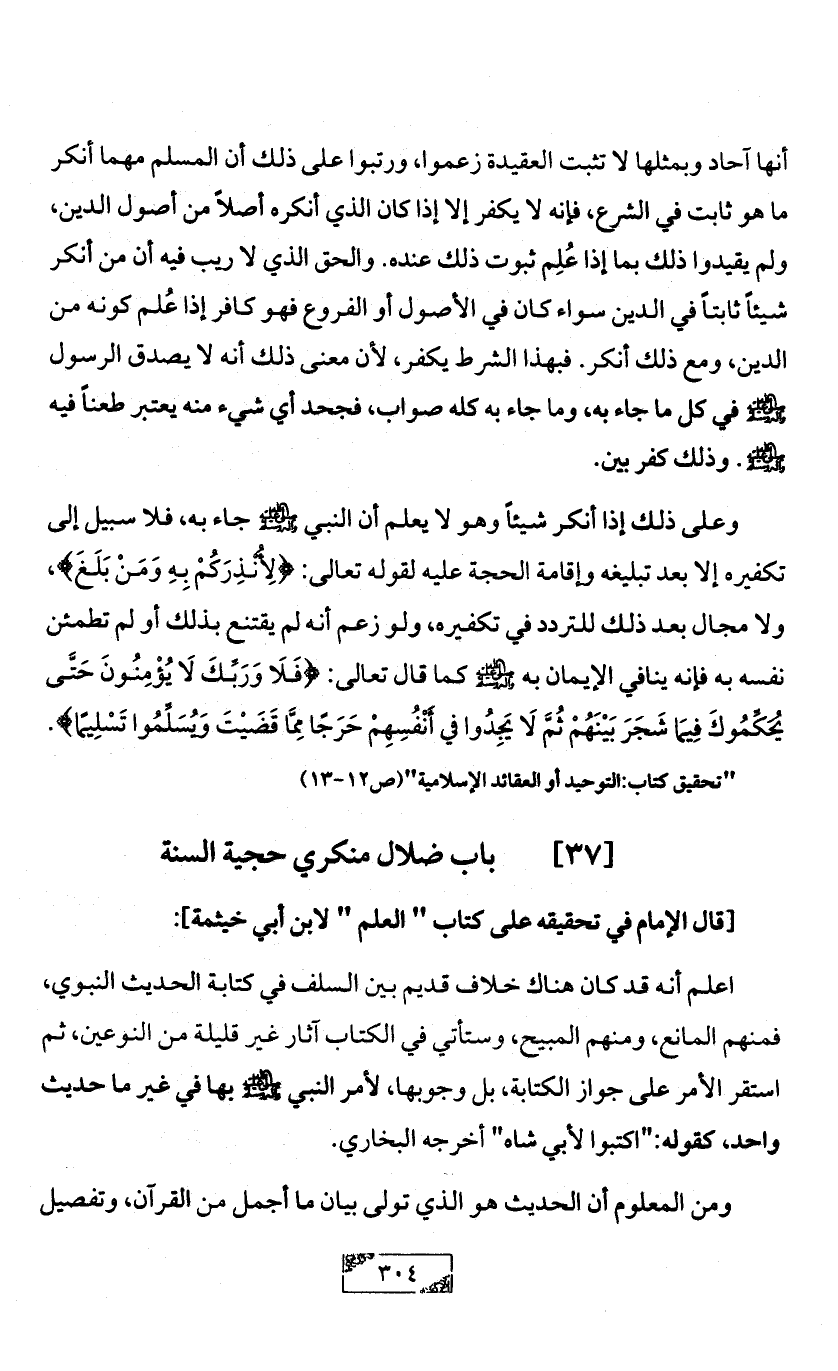 أنها آحاد وبمثلها لا تثبت العقيدة زعموا، ورتبوا على ذلك أن المسلم مهما أنكر
ما هو ثابت في الشرع، فإنه لا يكفر إلا إذا كان الذي أنكره أصلاً من أصول الدين،
ولم يقيدوا ذلك بما إذا عُلِم ثبوت ذلك عنده. والحق الذي لا ريب فيه أن من أنكر
شيئاً ثابتاً في الدين سواء كان في الأصول أو الفروع فهو كافر إذا عُلم كونه من
الدين، ومع ذلك أنكر. فبهذا الشرط يكفر، لأن معنى ذلك أنه لا يصدق الرسول
ﷺ في كل ما جاء به، وما جاء به كله صواب، فجحد أي شيء منه يعتبر طعناً فيه
ﷺ. وذلك كفر بين.
وعلى ذلك إذا أنكر شيئاً وهو لا يعلم أن النبي ﷺ جاء به، فلا سبيل إلى
تكفيره إلا بعد تبليغه وإقامة الحجة عليه لقوله تعالى: ﴿لِأُنْذِرَكُمْ بِهِ وَمَنْ بَلَغَ﴾،
ولا مجال بعد ذلك للتردد في تكفيره، ولو زعم أنه لم يقتنع بذلك أو لم تطمئن
نفسه به فإنه ينافي الإيمان به ﷺ كما قال تعالى: ﴿فَلَا وَرَبِّكَ لَا يُؤْمِنُونَ حَتَّى
يُحَكِّمُوكَ فِيمَا شَجَرَ بَيْنَهُمْ ثُمَّ لَا يَجِدُوا فِي أَنْفُسِهِمْ حَرَجًا مِمَّا قَضَيْتَ وَيُسَلِّمُوا تَسْلِيمًا﴾.
"تحقيق كتاب:التوحيد أو العقائد الإسلامية"(ص١٢-١٣)
[٣٧] باب ضلال منكري حجية السنة
[قال الإمام في تحقيقه على كتاب " العلم " لابن أبي خيثمة]:
اعلم أنه قد كان هناك خلاف قديم بين السلف في كتابة الحديث النبوي،
فمنهم المانع، ومنهم المبيح، وستأتي في الكتاب آثار غير قليلة من النوعين، ثم
استقر الأمر على جواز الكتابة، بل وجوبها، لأمر النبي ﷺ بها في غير ما حديث
واحد، كقوله:"اكتبوا لأبي شاه" أخرجه البخاري.
ومن المعلوم أن الحديث هو الذي تولى بيان ما أجمل من القرآن، وتفصيل
٣٠٤